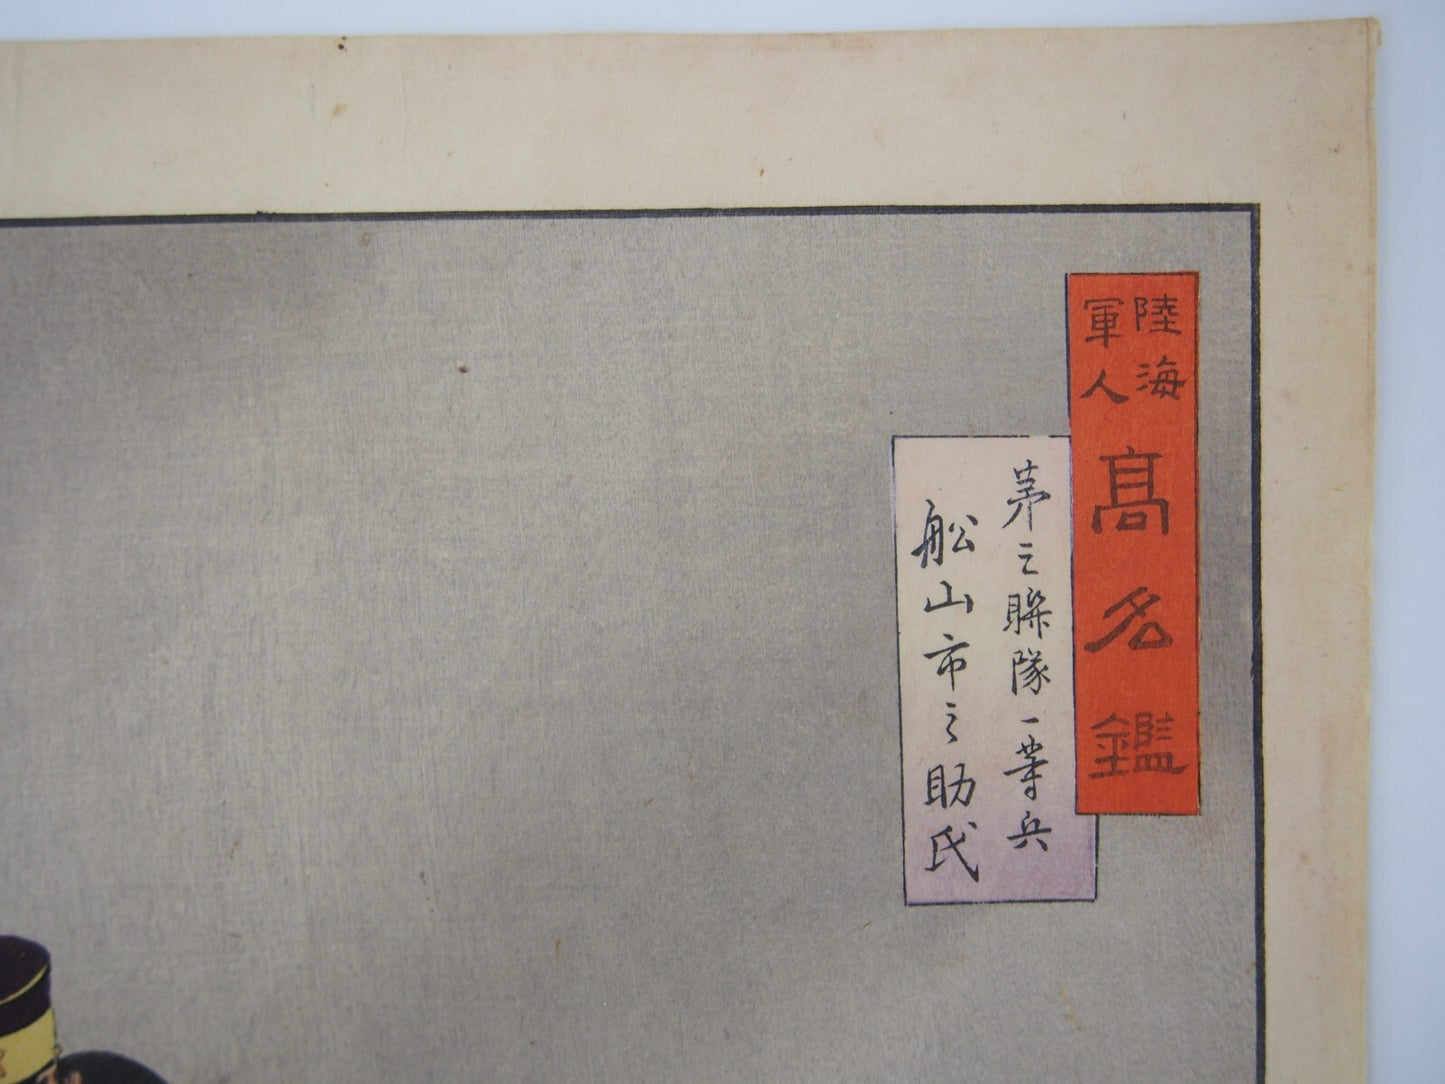 陸海
軍人
高名鑑
第三聯隊一等兵
舩山市之助氏